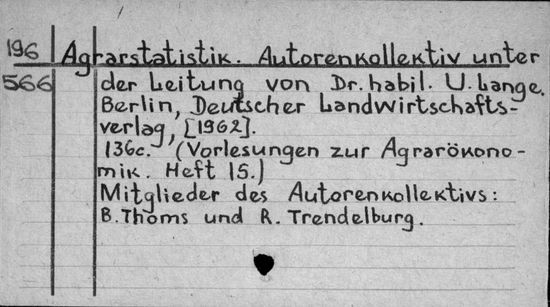 196 Agrarstatistik. Autorenkollektiv unter
566 der Leitung von Dr. habil. U. Lange.
Berlin, Deutscher Landwirtschafts-
verlag, [1962].
136c. (Vorlesungen zur Agrarökono-
mik. Heft 15.)
Mitglieder des Autorenkollektivs:
B. Thoms und R. Trendelburg.